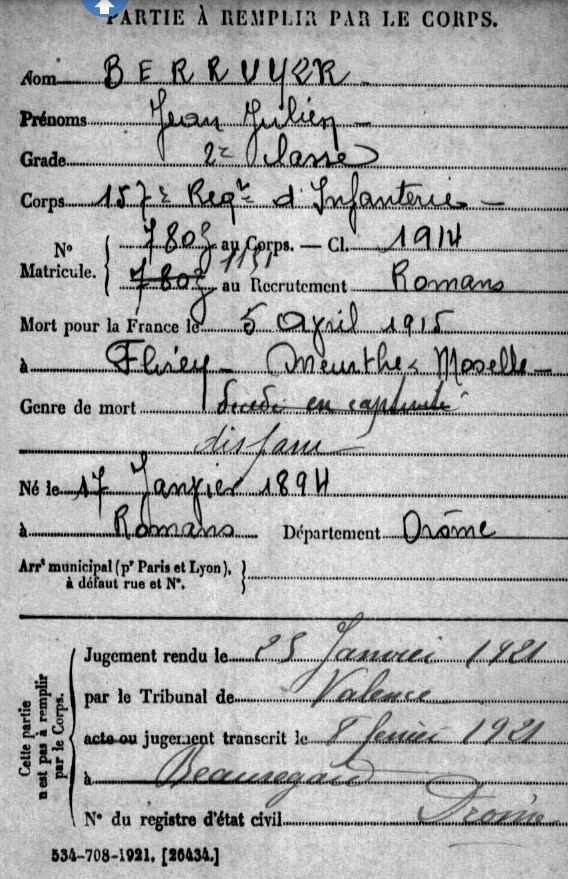 PARTIE À REMPLIR PAR LE CORPS.
Nom BERRUYER
Prénoms Jean Julien
Grade 2e classe
Corps 157e Regt d'Infanterie
N° Matricule. 7803 au Corps. — Cl. 1914
7803 1151 au Recrutement Romans
Mort pour la France le 5 April 1915
à Flirey - Meurthe & Moselle
Genre de mort Décédé en captivité
disparu
Né le 17 Janvier 1894
à Romans Département Drôme
Arrt municipal (pr Paris et Lyon), à défaut rue et N°.
Cette partie n'est pas à remplir par le Corps.
Jugement rendu le 25 Janvier 1921
par le Tribunal de Valence
acte ou jugement transcrit le 8 février 1921
à Beauregard
Drôme
N° du registre d'état civil
534-708-1921. [26434.]